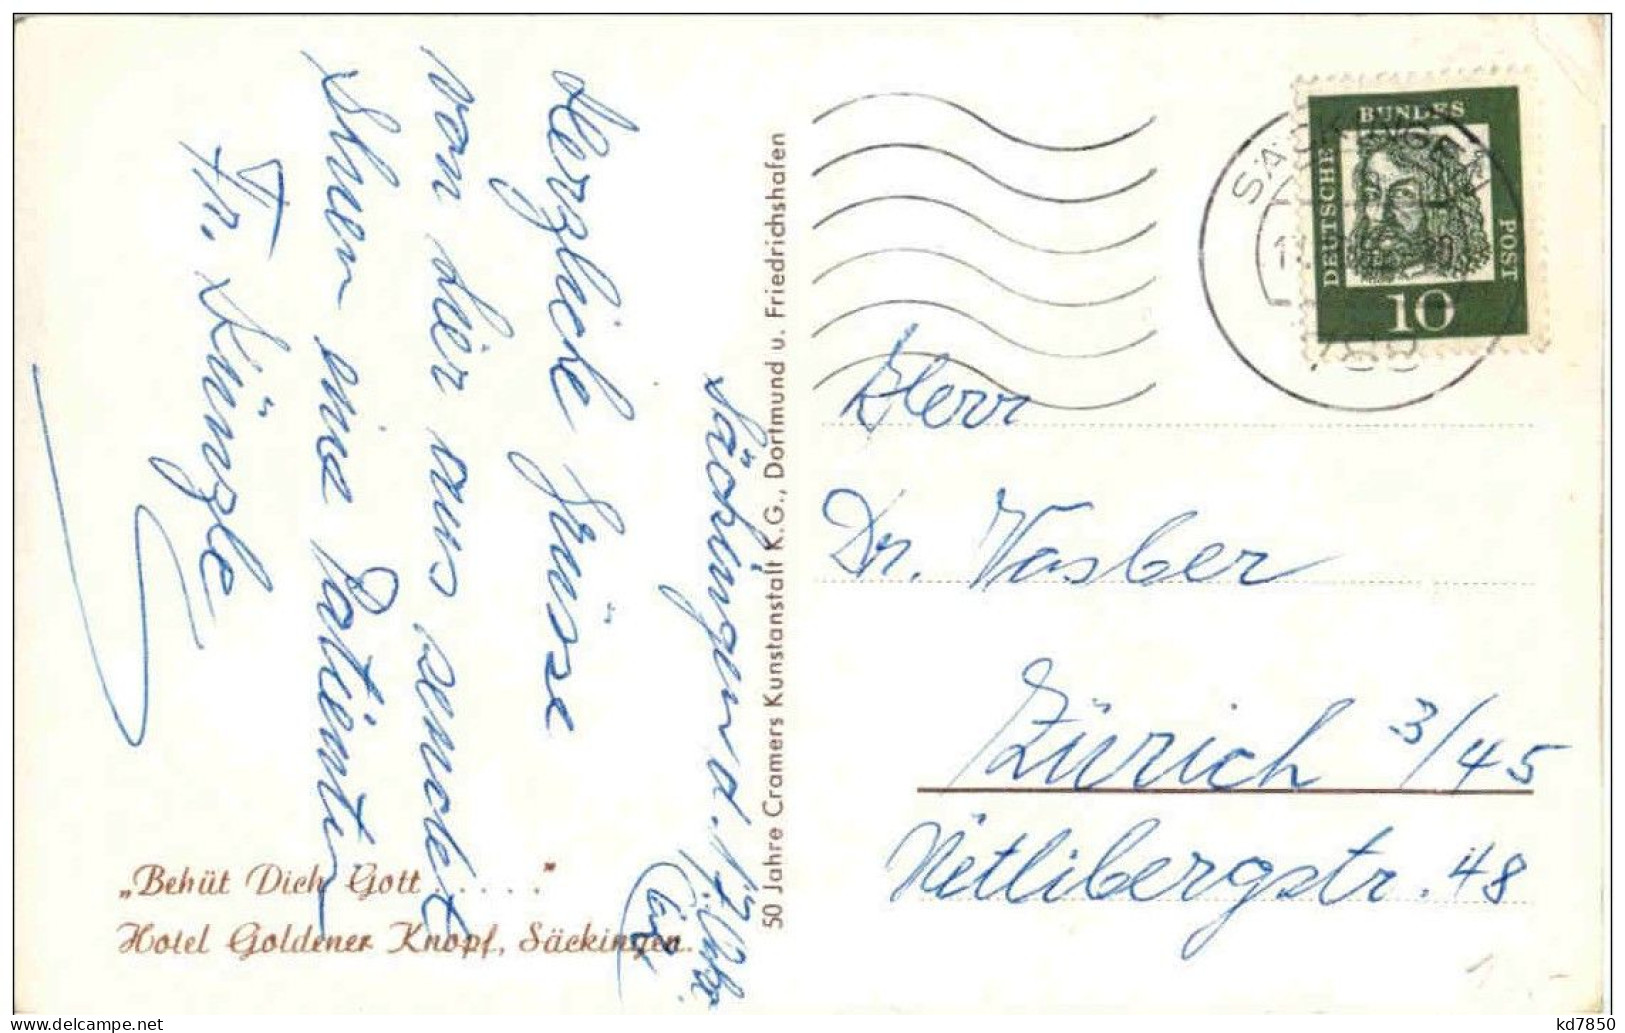 Säckingen d. 17. Okt.
Herzliche Grüsse
von hier aus sendet
Ihnen eine Patientin
Fr. Künzle
„Behüt Dich Gott . . . . . ."
Hotel Goldener Knopf, Säckingen.
50 Jahre Cramers Kunstanstalt K.G., Dortmund u. Friedrichshafen
SÄCKINGEN
DEUTSCHE
BUNDES
POST
10
Herr
Dr. Vasber
Zürich 3/45
Uetlibergstr. 48
kd7850